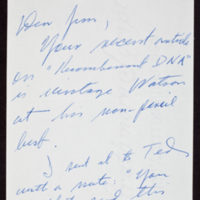 Dear Jim,
Your recent article
on "Recombinant DNA"
is vintage Watson
at his non-pencil
best.
I sent it to Ted
with a note: "You
and this